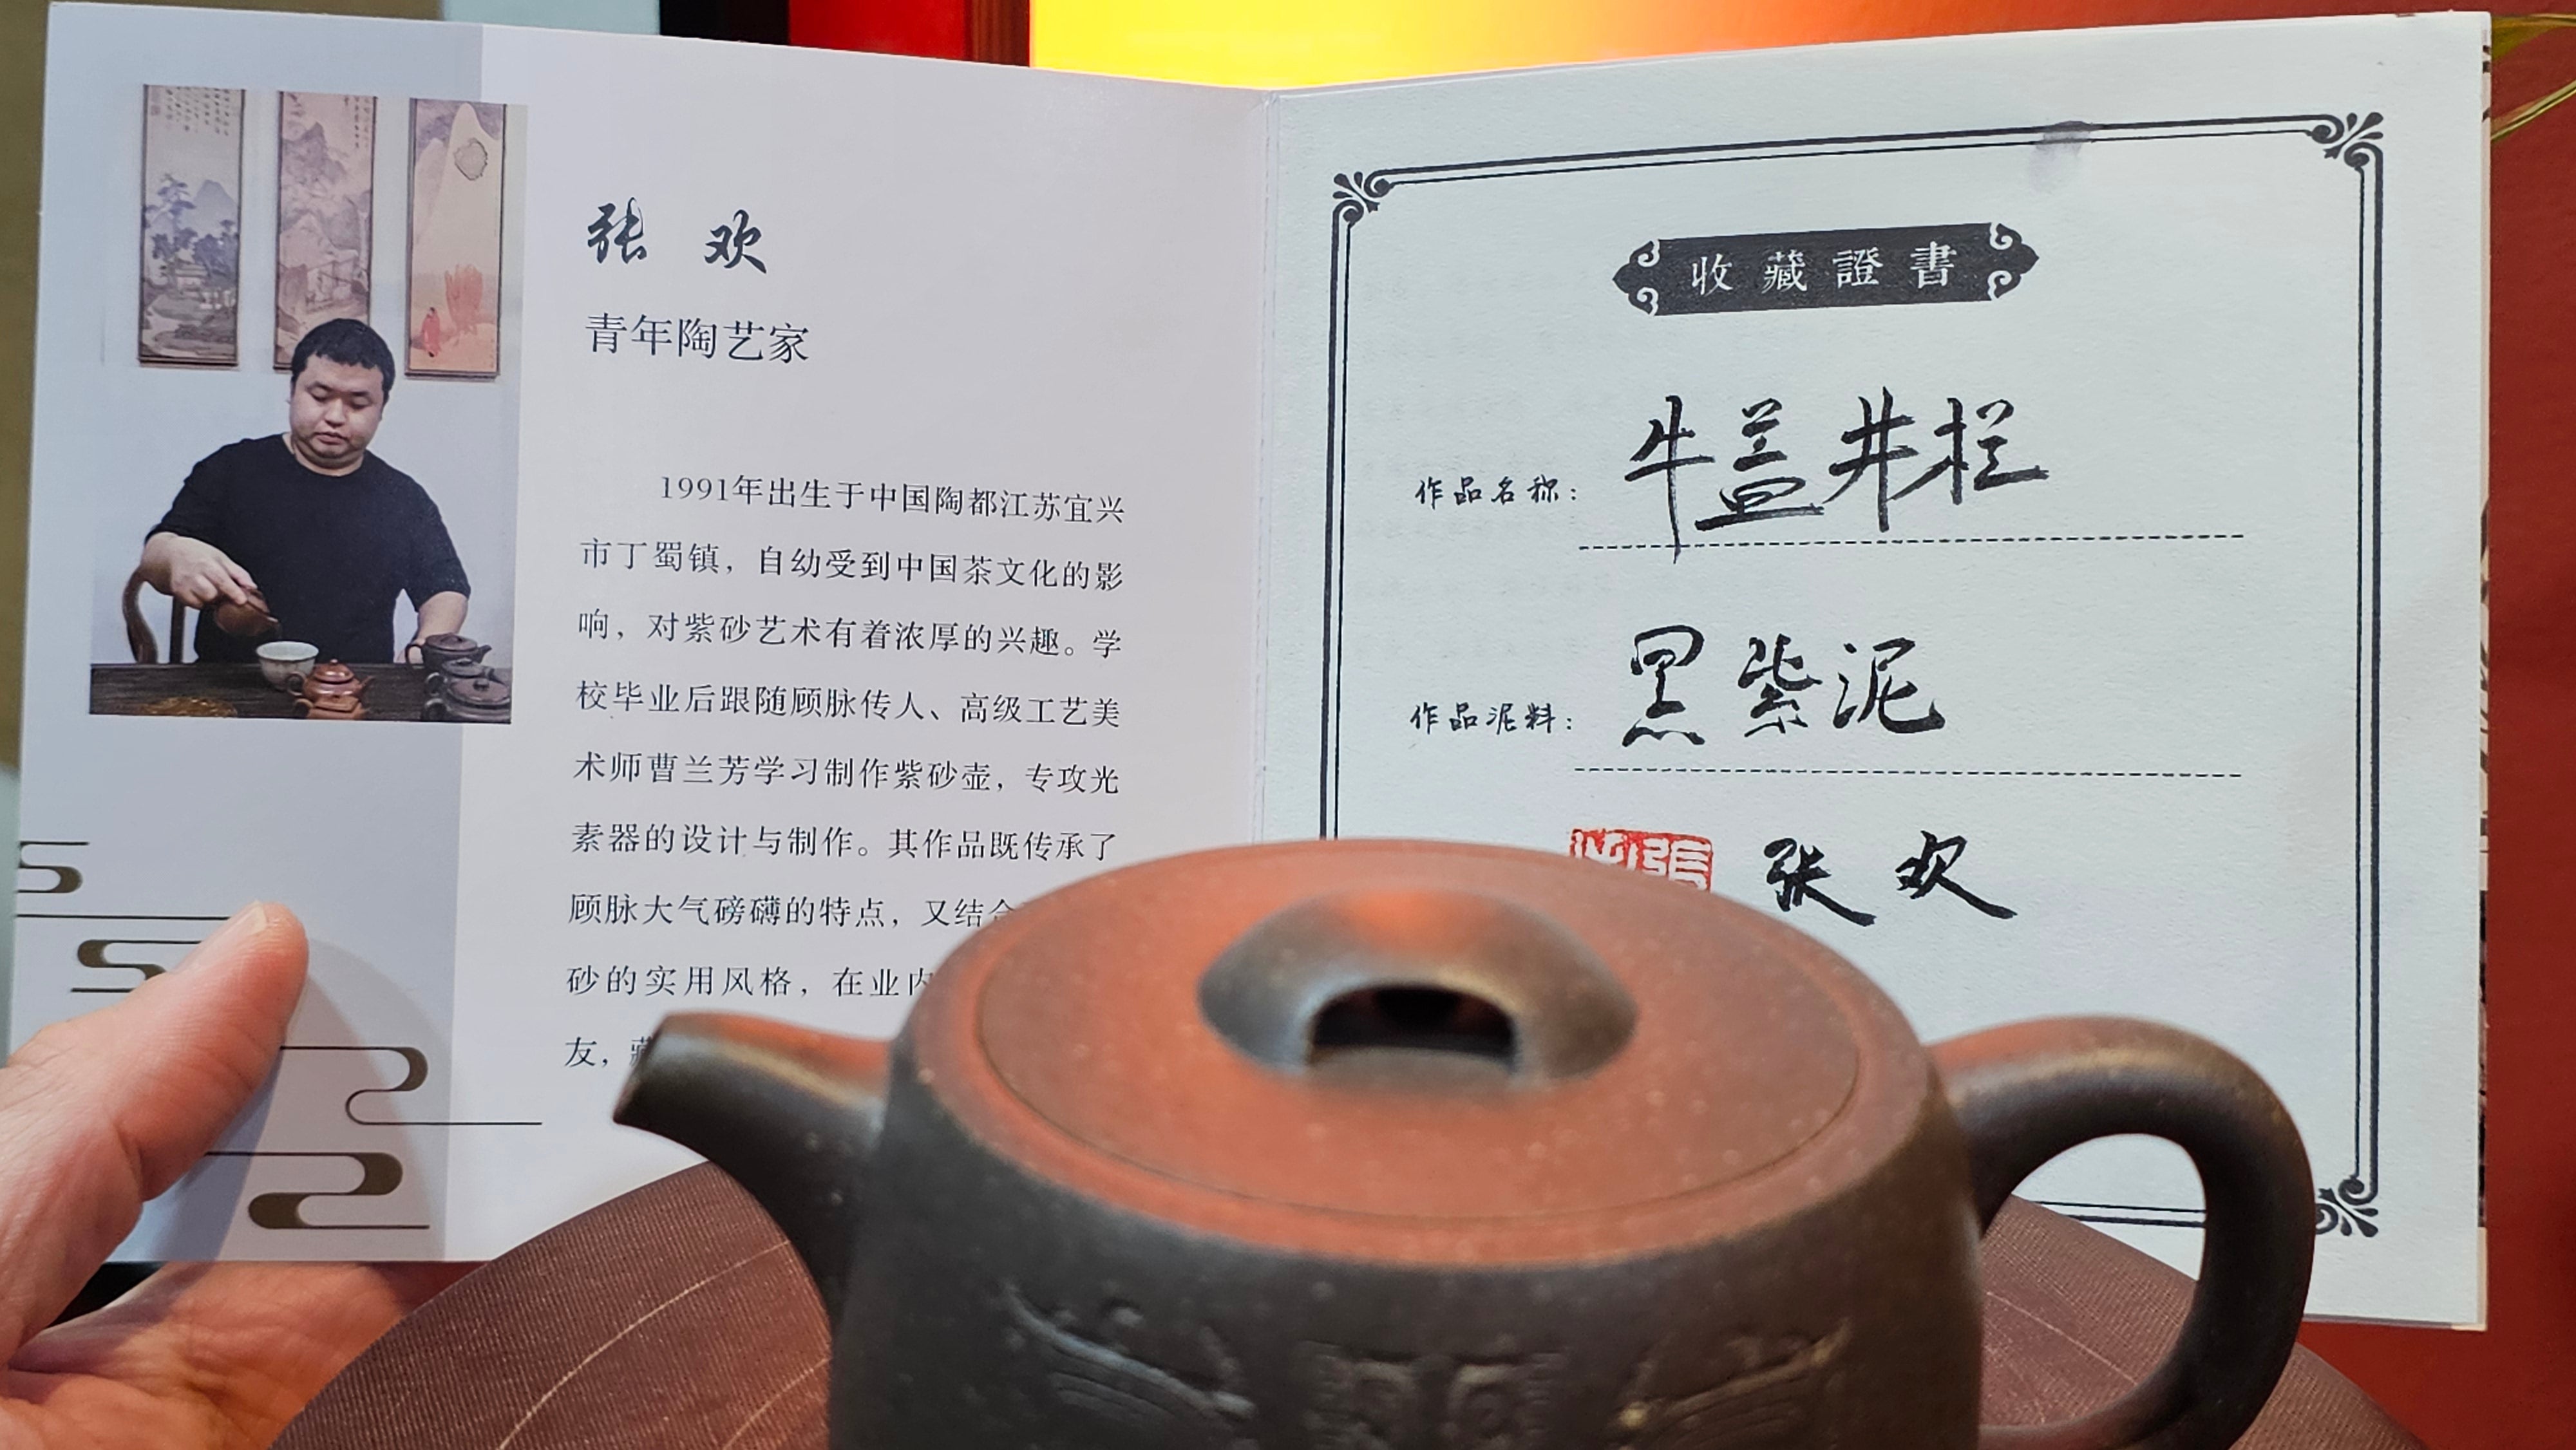 张 欢
青年陶艺家
1991年出生于中国陶都江苏宜兴
市丁蜀镇，自幼受到中国茶文化的影
响，对紫砂艺术有着浓厚的兴趣。学
校毕业后跟随顾脉传人、高级工艺美
术师曹兰芳学习制作紫砂壶，专攻光
素器的设计与制作。其作品既传承了
顾脉大气磅礴的特点，又结合
砂的实用风格，在业内
友，藏
收藏證書
作品名称：牛盖井栏
作品泥料：黑紫泥
张 欢